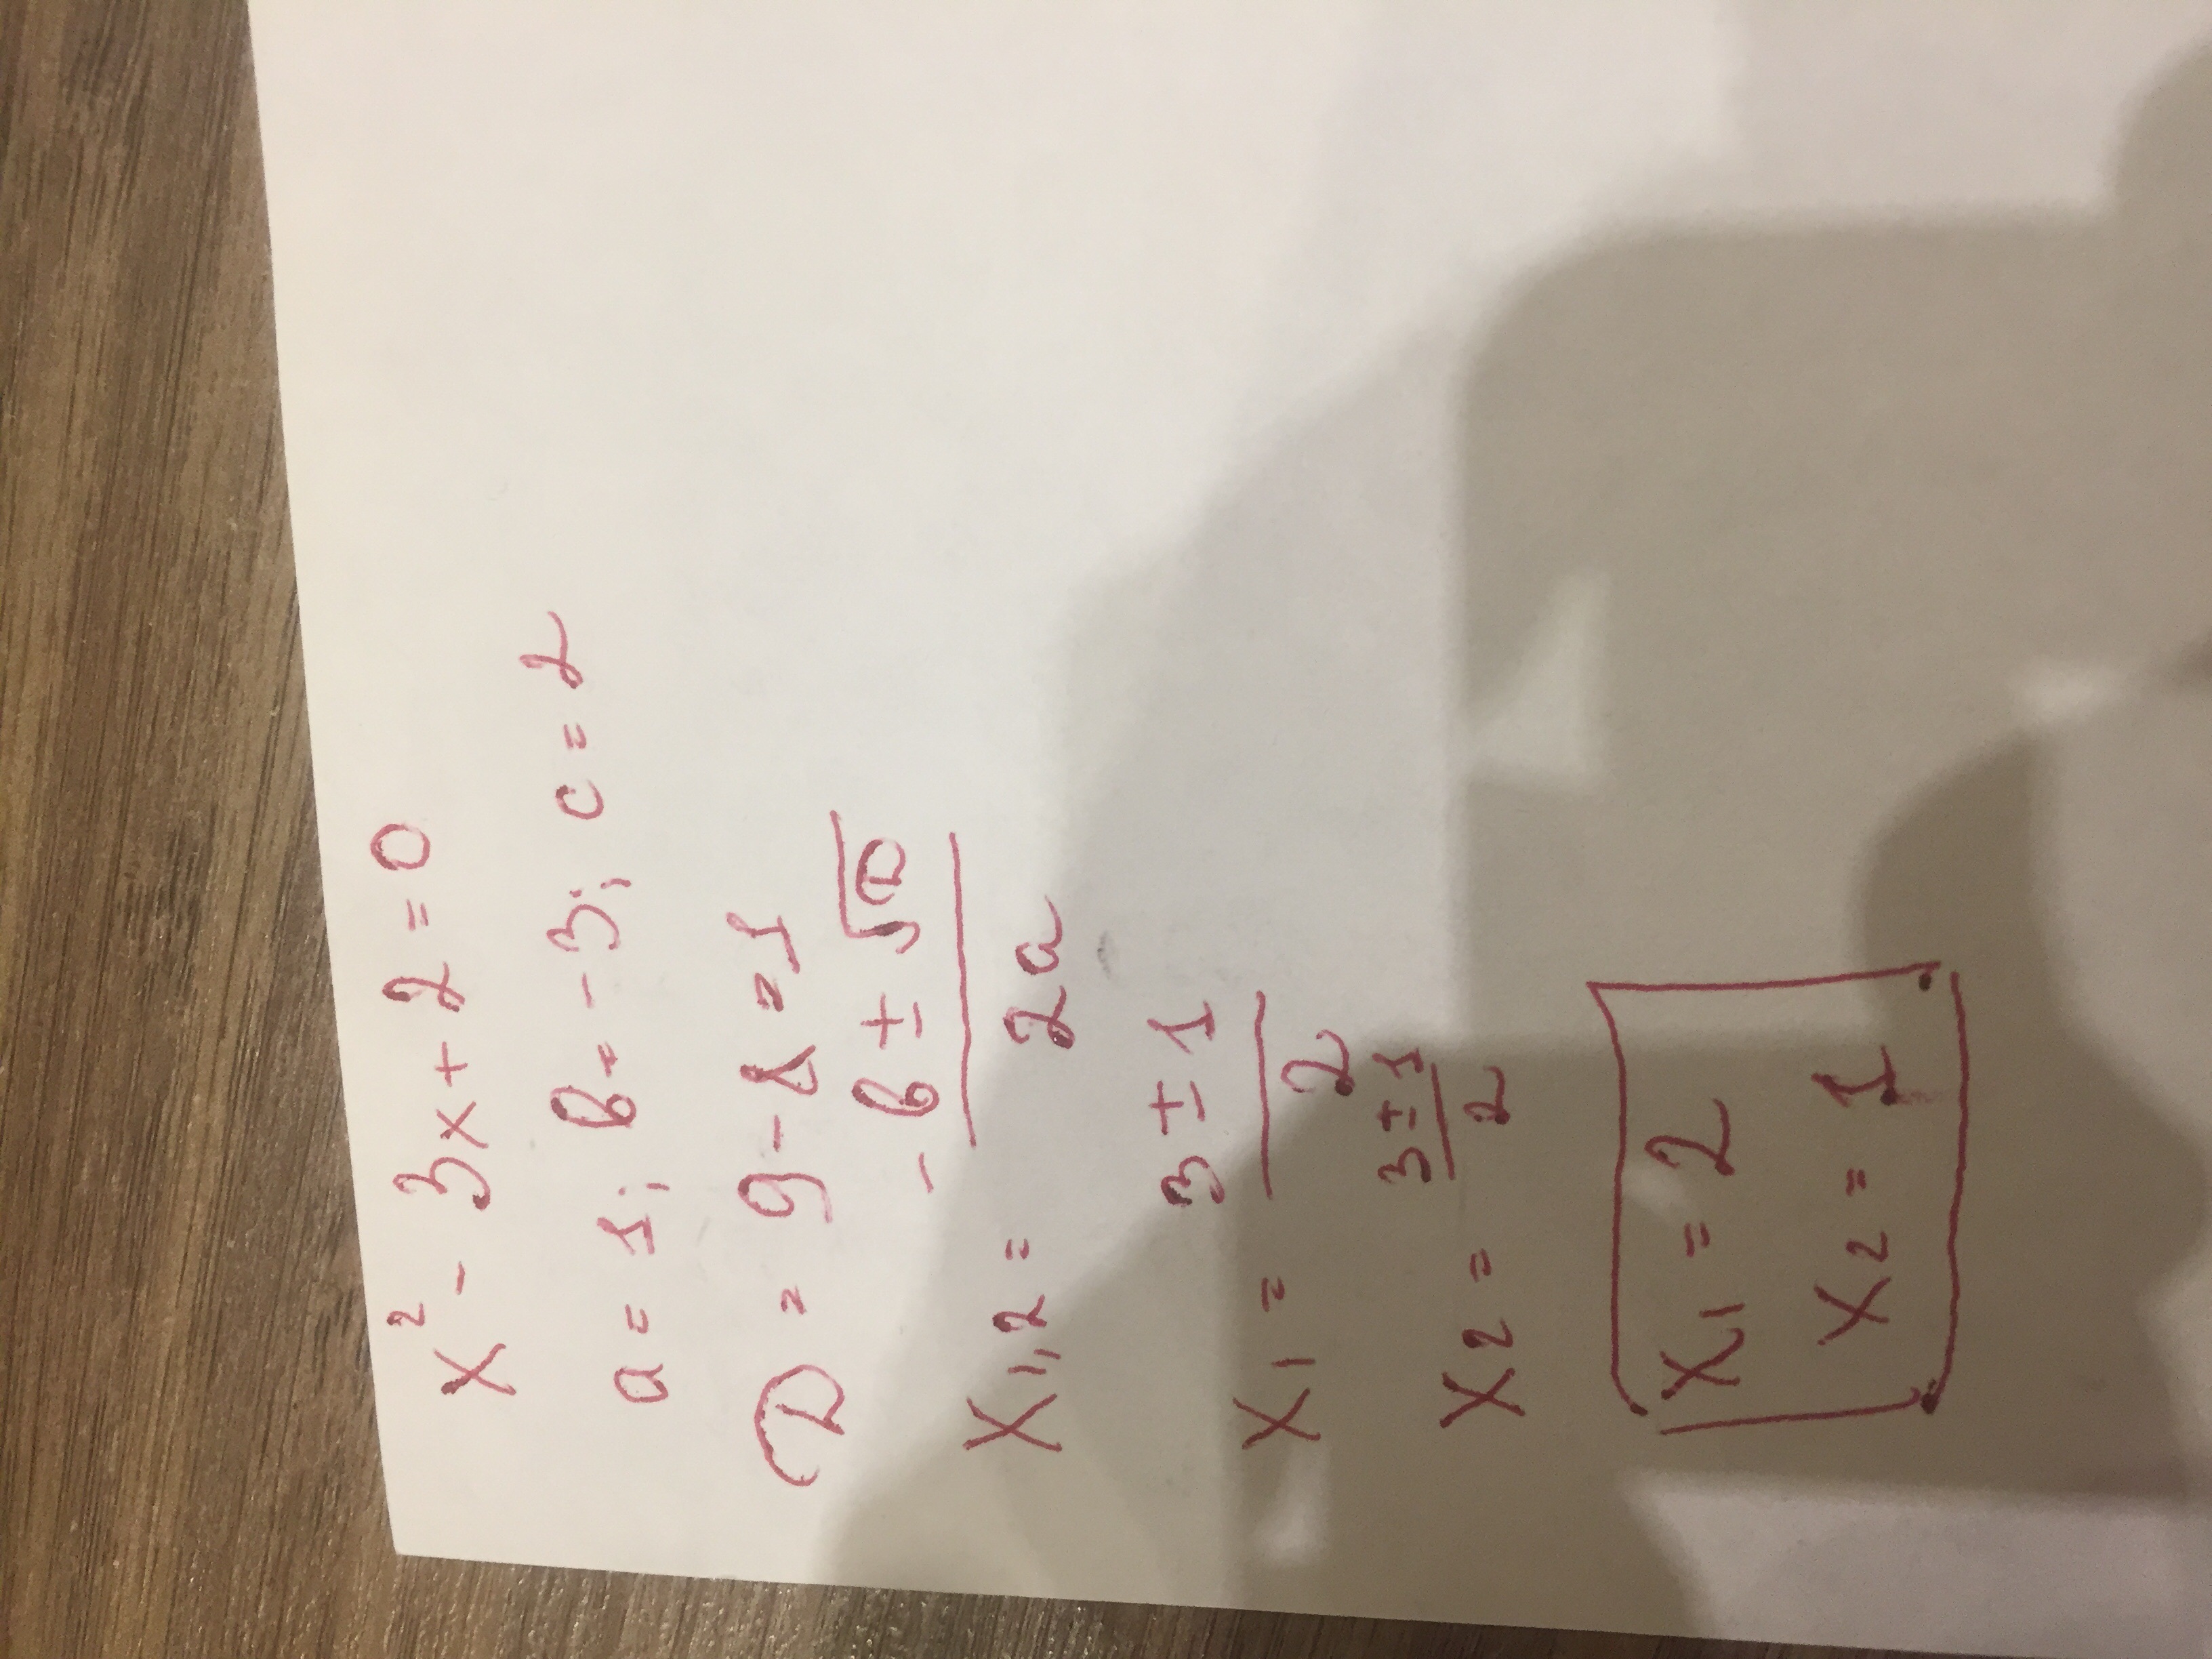 x² - 3x + 2 = 0
a = 1; b = -3; c = 2
D = 9 - 8 = 1
x₁,₂ = (-b ± √D) / 2a
x₁ = (3 ± 1) / 2
x₂ = (3 ± 1) / 2
x₁ = 2
x₂ = 1